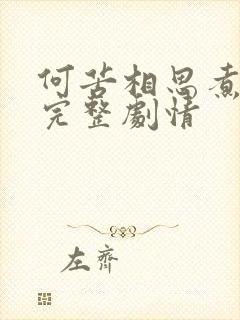 何苦相思煮
完整劇情
左齊